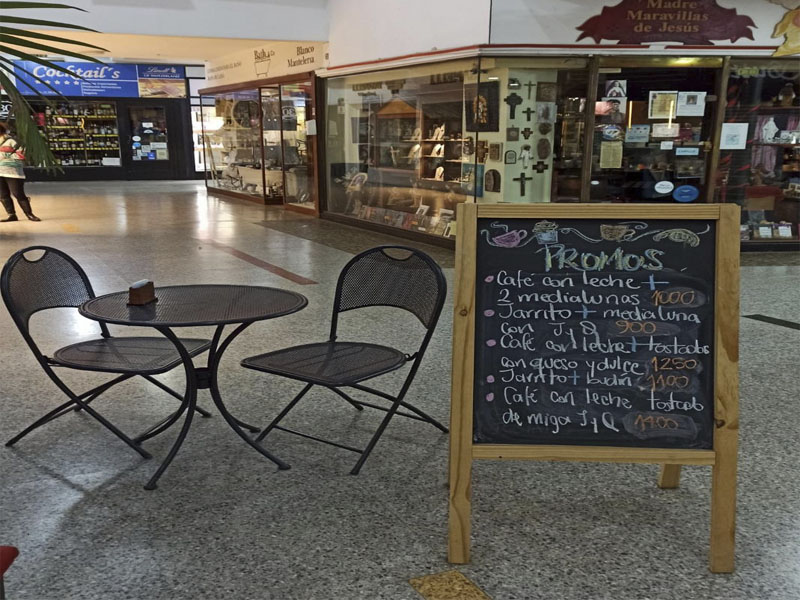 Madre
Maravillas
de Jesús
Blanco
Mantelería
Bath & Co
Cocktail's
PROMOS
Café con leche +
2 medialunas 1000
Jarrito + medialuna
con J y Q 900
Café con leche + tostados
con queso y dulce 1250
Jarrito + budín 1100
Café con leche tostado
de miga J y Q 1400